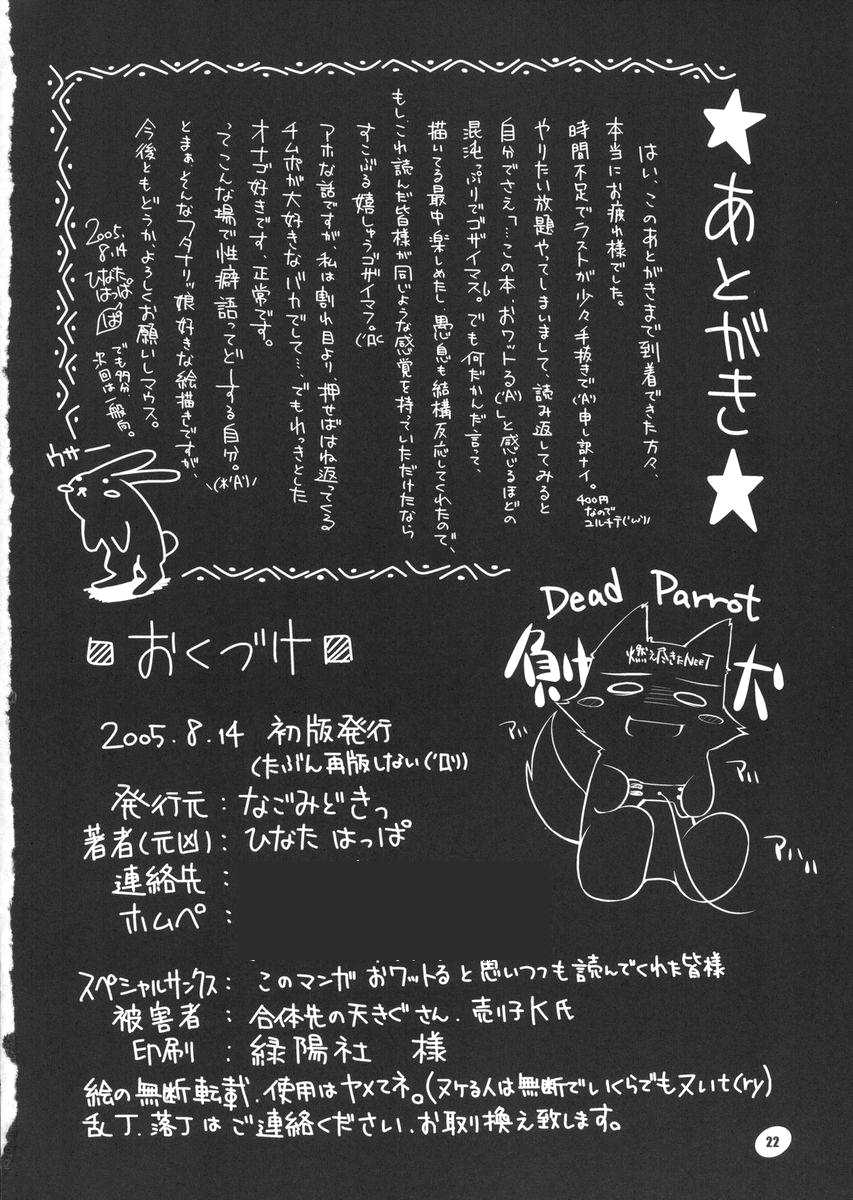 ★あとがき★
はい、このあとがきまで到着できた方々、
本当にお疲れ様でした。
時間不足でラストが少々手抜きで('A`)申し訳ナイ。
400円
なので
ユルチテ('ω`)ﾉ
やりたい放題やってしまいまして、読み返してみると
自分でさえ「…この本、おワットる('A`)」と感じるほどの
混沌っぷりでゴザイマス。でも何だかんだ言って、
描いてる最中楽しめたし、愚息も結構反応してくれたので、
もしこれ読んだ皆様が同じような感覚を持っていただけたなら
すこぶる嬉しゅうゴザイマフ。
アホな話ですが、私は割れ目より、押せばはね返ってくる
チムポが大好きなバカでして…、でもれっきとした
オナゴ好きです、正常です。
ってこんな場で性癖語ってどーする自分。
とまぁそんなフタナリッ娘好きな絵描きですが、
今後ともどうか、よろしくお願いしマウス。
2005.
8.14
ひなた
はっぱ
ぱ
でも多分、
次回は一般向。
ウサー
Dead Parrot
負け犬
燃え尽きたNEET
アハ
アハ
アハハ
おくづけ
2005.8.14 初版発行
(たぶん再版しない('ロ`))
発行元：なごみどきっ
著者(元凶)：ひなた はっぱ
連絡先：
ホムペ：
スペシャルサンクス：このマンガ おワットると思いつつも読んでくれた皆様
被害者：合体先の天きぐさん、売り子K氏
印刷：緑陽社 様
絵の無断転載、使用はヤメてネ。(ヌケる人は無断でいくらでもヌいt(ry)
乱丁、落丁はご連絡ください、お取り換え致します。
22